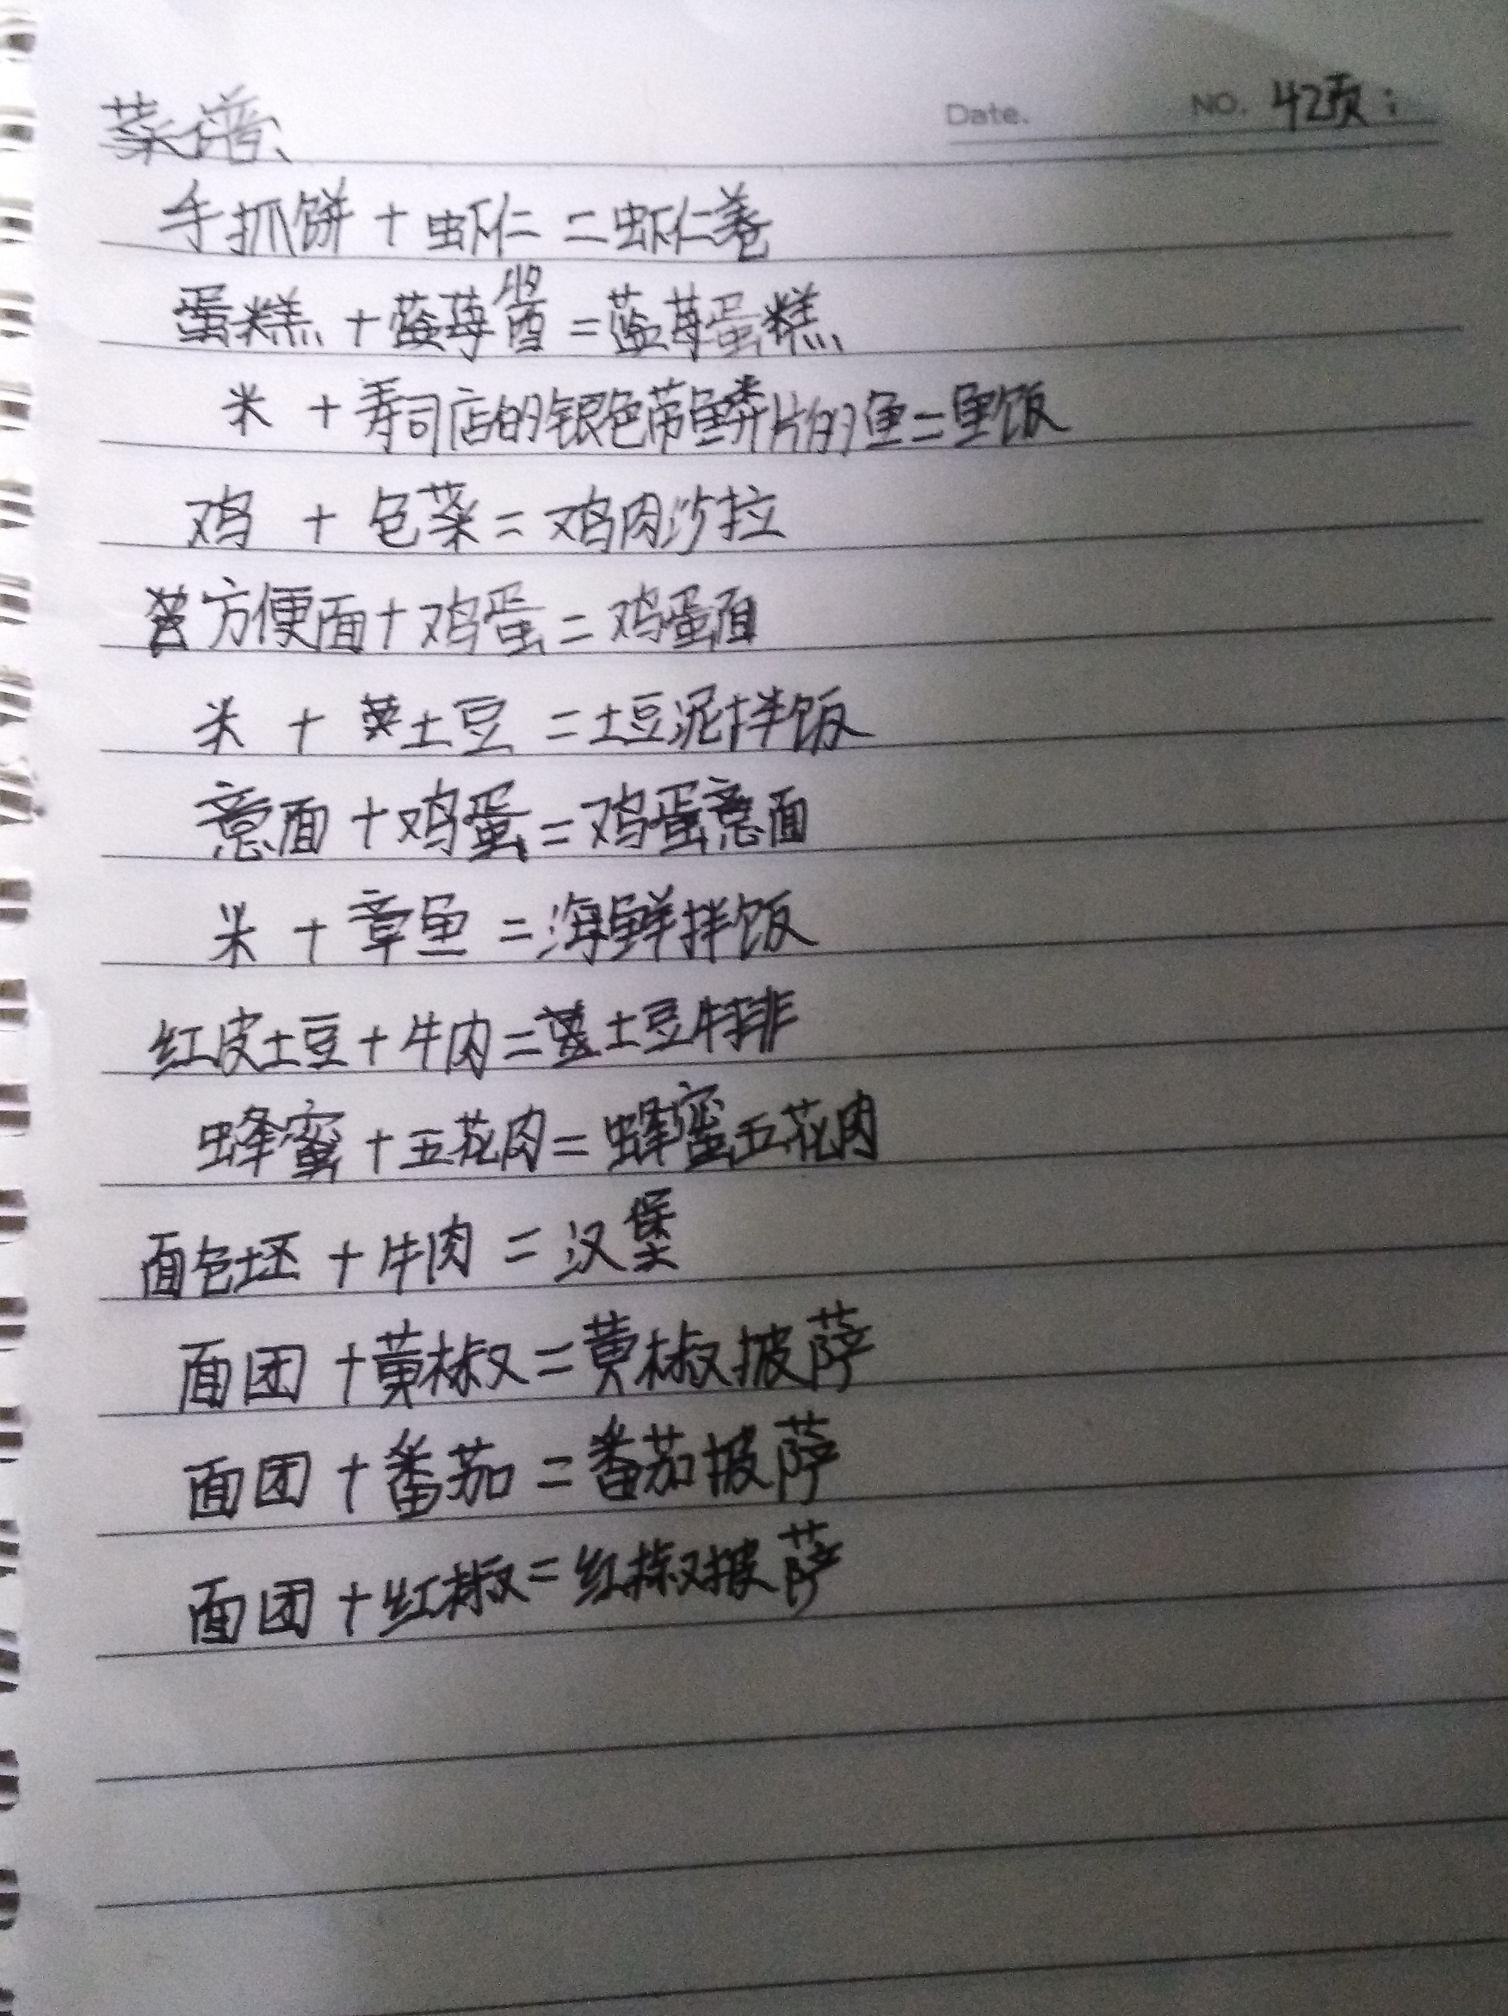 菜谱、 Date. NO. 42页:
手抓饼+虾仁=虾仁卷
蛋糕+蓝莓酱=蓝莓蛋糕
米+寿司店的银色带鳞片的鱼=鱼饭
鸡+包菜=鸡肉沙拉
方便面+鸡蛋=鸡蛋面
米+土豆=土豆泥拌饭
意面+鸡蛋=鸡蛋意面
米+章鱼=海鲜拌饭
红皮土豆+牛肉=土豆牛排
蜂蜜+五花肉=蜂蜜五花肉
面包坯+牛肉=汉堡
面团+黄椒=黄椒披萨
面团+番茄=番茄披萨
面团+红椒=红椒披萨